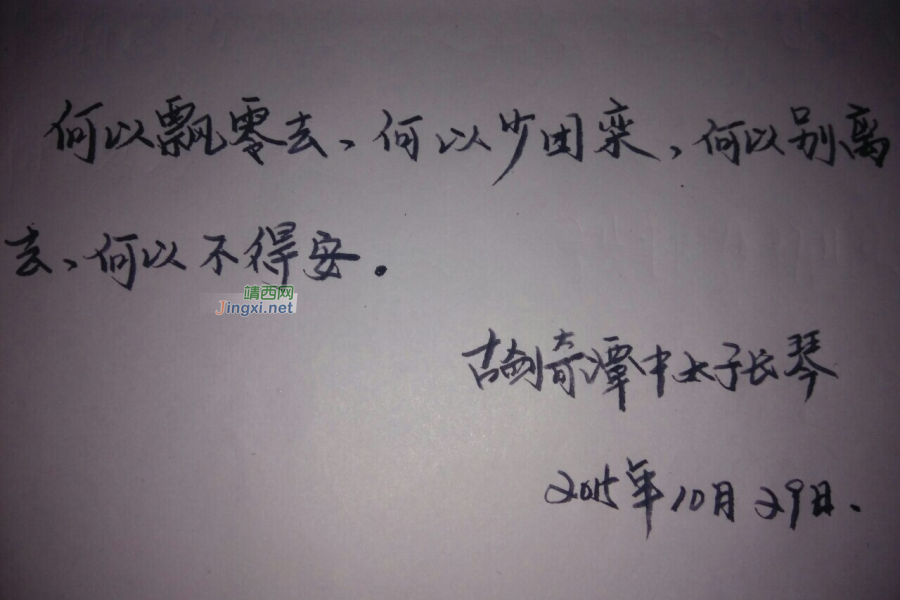 何以飘零去、何以少团栾,何以别离
去、何以不得安。
靖西网
Jingxi.net
古剑奇潭中太子长琴
2015年10月29日、